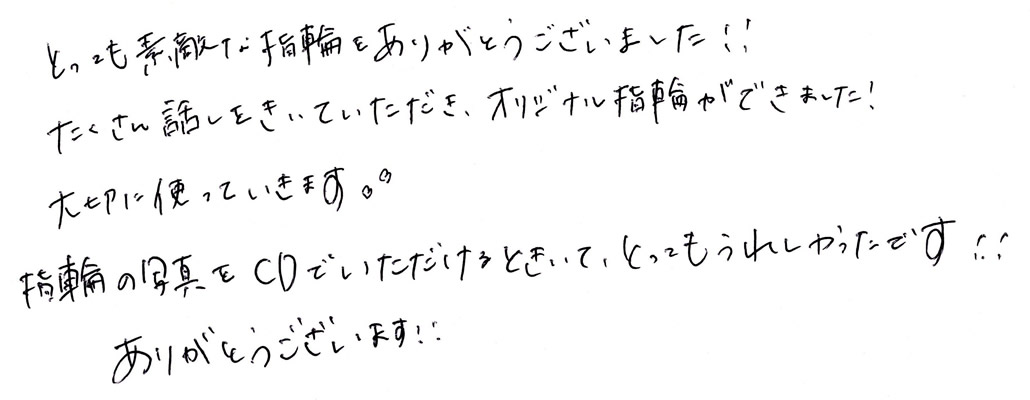 とっても素敵な指輪をありがとうございました!!
たくさん話しをきいていただき、オリジナル指輪ができました!
大切に使っていきます。。
指輪の写真をCDでいただけるときいて、とってもうれしかったです!!
ありがとうございます!!